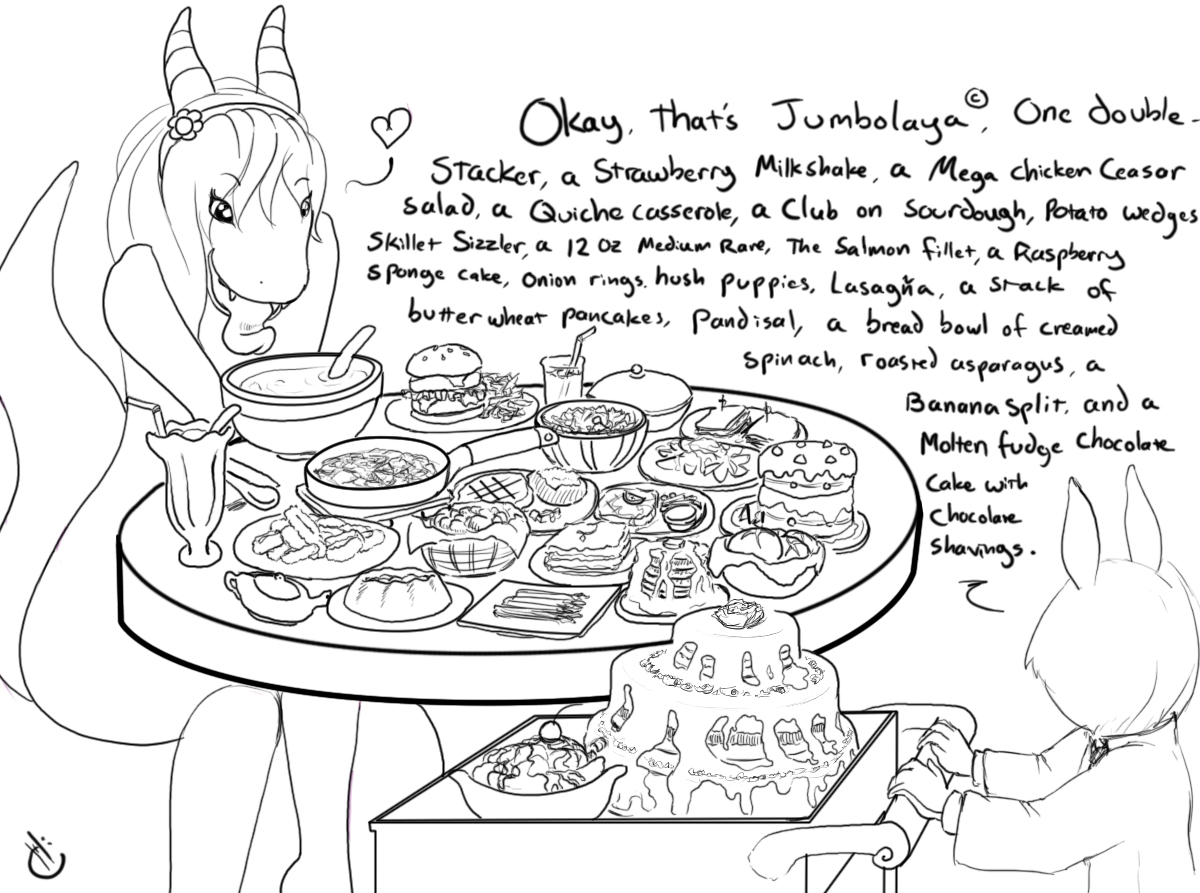 Okay, that's Jumbolaya©, One double-
Stacker, a Strawberry Milkshake, a Mega chicken Ceasar
salad, a Quiche casserole, a Club on Sourdough, Potato wedges
Skillet Sizzler, a 12 oz Medium Rare, The Salmon fillet, a Raspberry
Sponge cake, onion rings. hush puppies, Lasagña, a stack of
butter wheat pancakes, Pandisal, a bread bowl of creamed
spinach, roasted asparagus, a
Banana Split, and a
Molten fudge Chocolate
Cake with
Chocolate
Shavings.